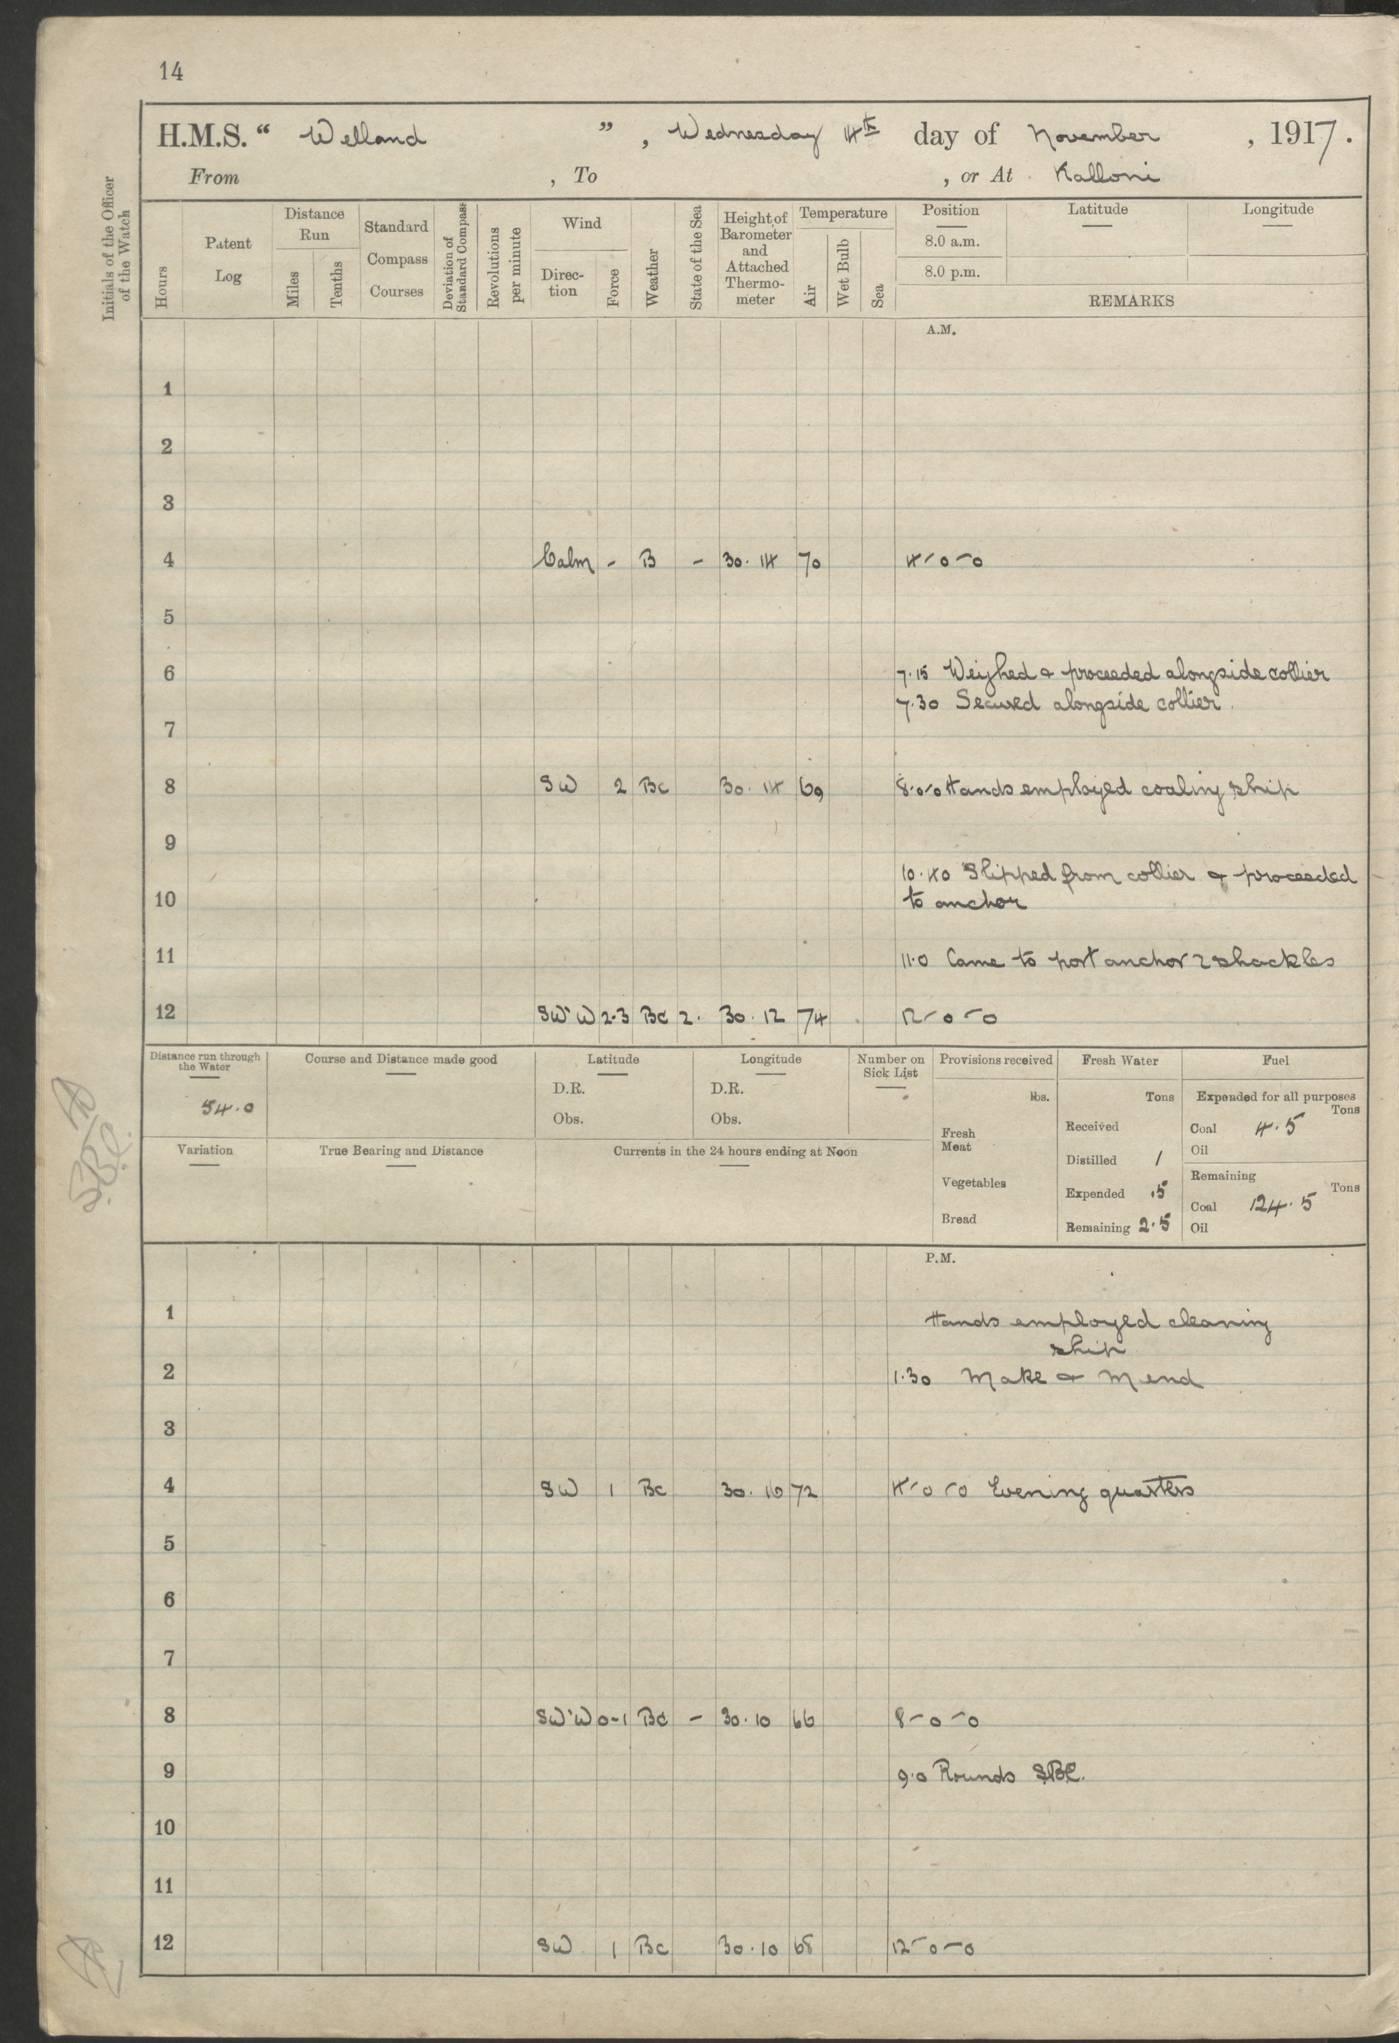 14
H.M.S. “ Welland ” , Wednesday 14th day of November , 1917.
From , To , or At Kalloni
Initials of the Officer of the Watch
Hours
Patent Log
Distance Run
Miles
Tenths
Standard Compass Courses
Deviation of Standard Compass
Revolutions per minute
Wind
Direction
Force
Weather
State of the Sea
Height of Barometer and Attached Thermometer
Temperature
Air
Wet Bulb
Sea
Position Latitude Longitude
8.0 a.m.
8.0 p.m.
REMARKS
A.M.
1
2
3
4 Calm - B - 30.14 70 4-0-0
5
6 7.15 Weighed & proceeded alongside collier
7.30 Secured alongside collier.
7
8 SW 2 Bc 30.14 69 8.0-0 Hands employed coaling ship
9
10.40 Slipped from collier & proceeded
10 to anchor
11 11.0 Came to port anchor 2 shackles
12 SW'W 2-3 Bc 2. 30.12 74 12-0-0
Distance run through the Water
54.0
Course and Distance made good
Latitude
D.R.
Obs.
Longitude
D.R.
Obs.
Number on Sick List
Variation
True Bearing and Distance
Currents in the 24 hours ending at Noon
Provisions received
lbs.
Fresh Meat
Vegetables
Bread
Fresh Water
Tons
Received
Distilled 1
Expended .5
Remaining 2.5
Fuel
Expended for all purposes
Tons
Coal 4.5
Oil
Remaining
Tons
Coal 124.5
Oil
P.M.
1 Hands employed cleaning
ship
2 1.30 Make & Mend
3
4 SW 1 Bc 30.10 72 4-0-0 Evening quarters
5
6
7
8 SW'W 0-1 Bc - 30.10 66 8-0-0
9 9.0 Rounds SBC.
10
11
12 SW 1 Bc 30.10 68 12-0-0